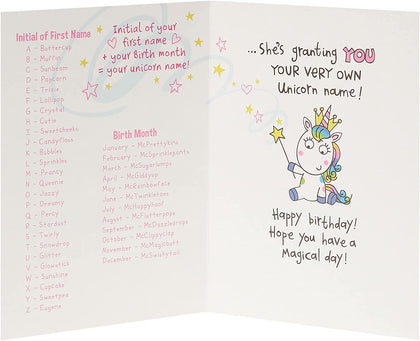 Initial of First Name
A - Buttercup
B - Muffin
C - Sunbeam
D - Popcorn
E - Trixie
F - Lollipop
G - Crystal
H - Cutie
I - Sweetcheeks
J - Candyfloss
K - Bubbles
L - Sprinkles
M - Prancy
N - Queenie
O - Jazzy
P - Dreamy
Q - Percy
R - Stardust
S - Twirly
T - Snowdrop
U - Glitter
V - Glowstick
W - Sunshine
X - Cupcake
Y - Sweetpea
Z - Eugene
Initial of your
first name
+ your Birth month
= your unicorn name!
Birth Month
January - McPrettykins
February - McSprinklepants
March - McSugarlumps
April - McGiddyup
May - McRainbowface
June - McTwinkletoes
July - McHappyhoof
August - McFlutterpops
September - McDazzledrops
October - McClippyclop
November - McMagicbutt
December - McSwishytail
...She's granting YOU
YOUR VERY OWN
Unicorn name!
Happy birthday!
Hope you have a
Magical day!